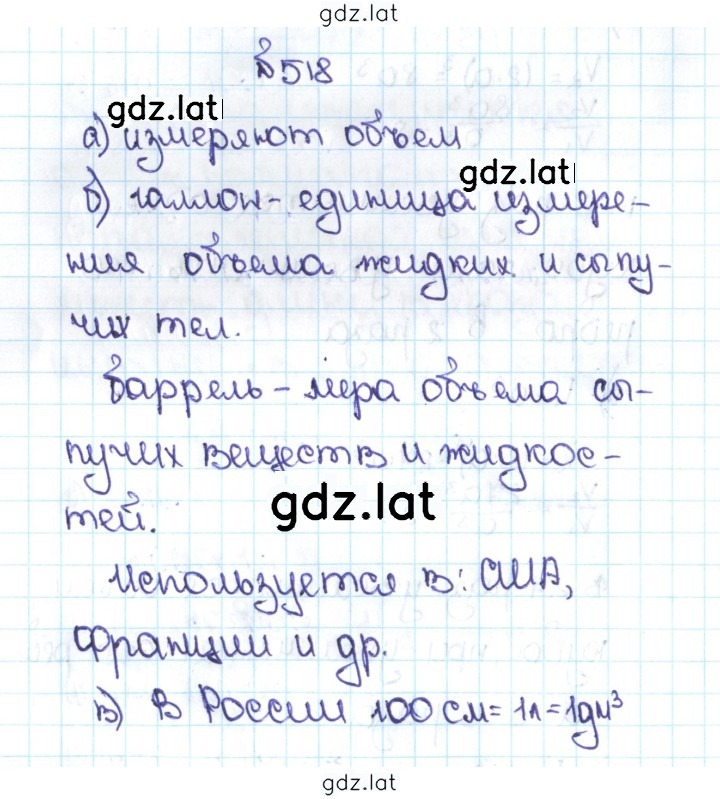 gdz.lat
№518
gdz.lat
а) измеряют объем
gdz.lat
б) галлон - единица измере-
ния объема жидких и сыпу-
чих тел.
Баррель - мера объема сы-
пучих веществ и жидкос-
тей.
gdz.lat
Используется в: США,
Франции и др.
в) В России 100 см = 1л = 1дм³
gdz.lat